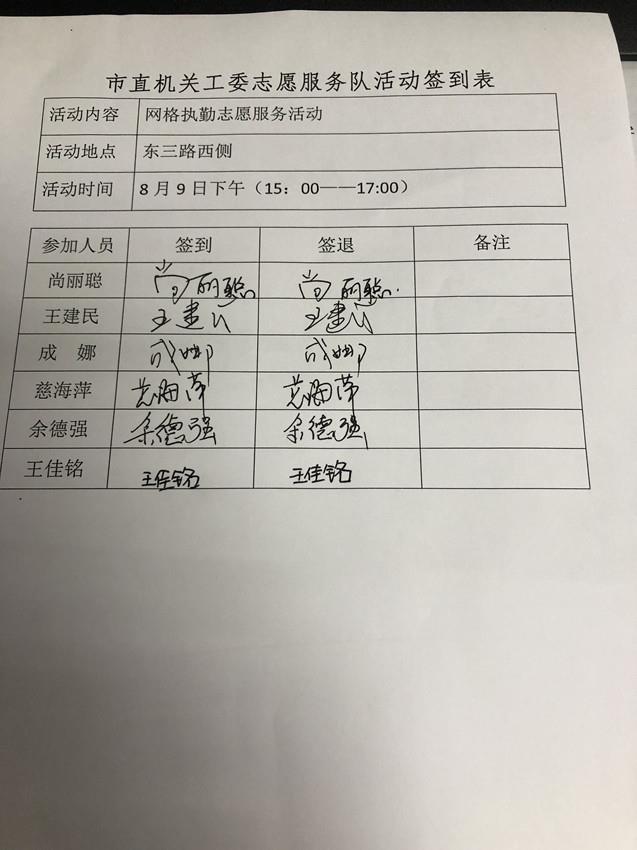 市直机关工委志愿服务队活动签到表
活动内容 网格执勤志愿服务活动
活动地点 东三路西侧
活动时间 8月9日下午（15：00——17:00）
参加人员 签到 签退 备注
尚丽聪 尚丽聪 尚丽聪
王建民 王建民 王建民
成 娜 成娜 成娜
慈海萍 慈海萍 慈海萍
余德强 余德强 余德强
王佳铭 王佳铭 王佳铭